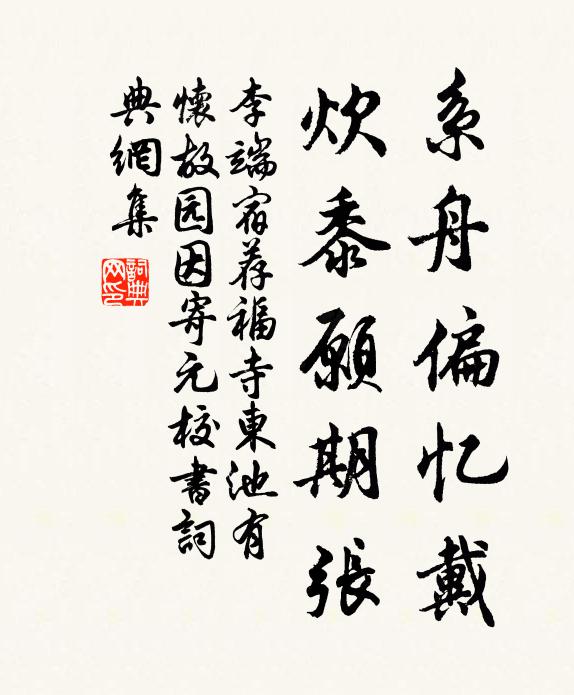 系舟偏忆戴
炊黍願期張
李端宿荐福寺東池有
懷故园因寄元校書詞
典網集
詞典网印